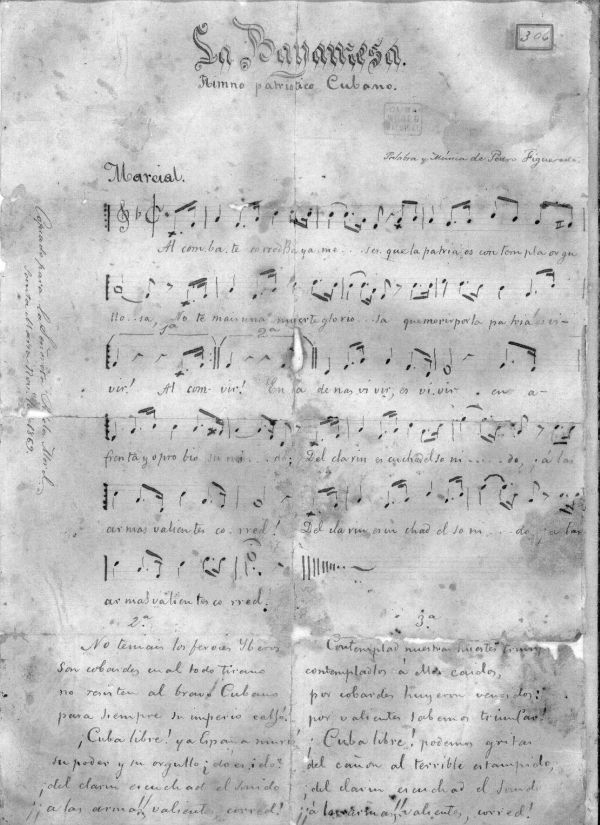 306
La Bayamesa.
Himno patriótico Cubano.
Palabra y Música de Pedro Figueredo.
Marcial.
Al com.ba.te corred Ba ya me...ses que la patria os contempla orgu
llo..sa No te mais una muerte glorio...sa que morir por la patria es vi-
1ª 2ª
vir! Al com- vir! En ca denas vivir, es vivir en a-
frenta y oprobio su mi...do; Del clarin escuchad el so ni.....do, ¡á las
armas valientes co..rred! Del clarin, escuchad el so ni...do ¡a las
armas valientes co rred!
Copiado para la Señorita
Santa María 1869.
2.ª
No temais los feroces Yberos
Son cobardes cual todo tirano
no resisten al bravo Cubano
para siempre su imperio cayó!
¡Cuba libre! ya España murió
su poder y su orgullo ¿do es ido?
¡del clarin escuchad el sonido
¡¡a las armas!! valientes, corred!
3.ª
Contemplad nuestras huestes
contempladlos á ellos caidos,
por cobardes huyeron vencidos:
por valientes sabemos triunfar!
¡Cuba libre! podemos gritar
del cañon al terrible estampido,
¡del clarin escuchad el
¡¡á las armas!! valientes, corred!